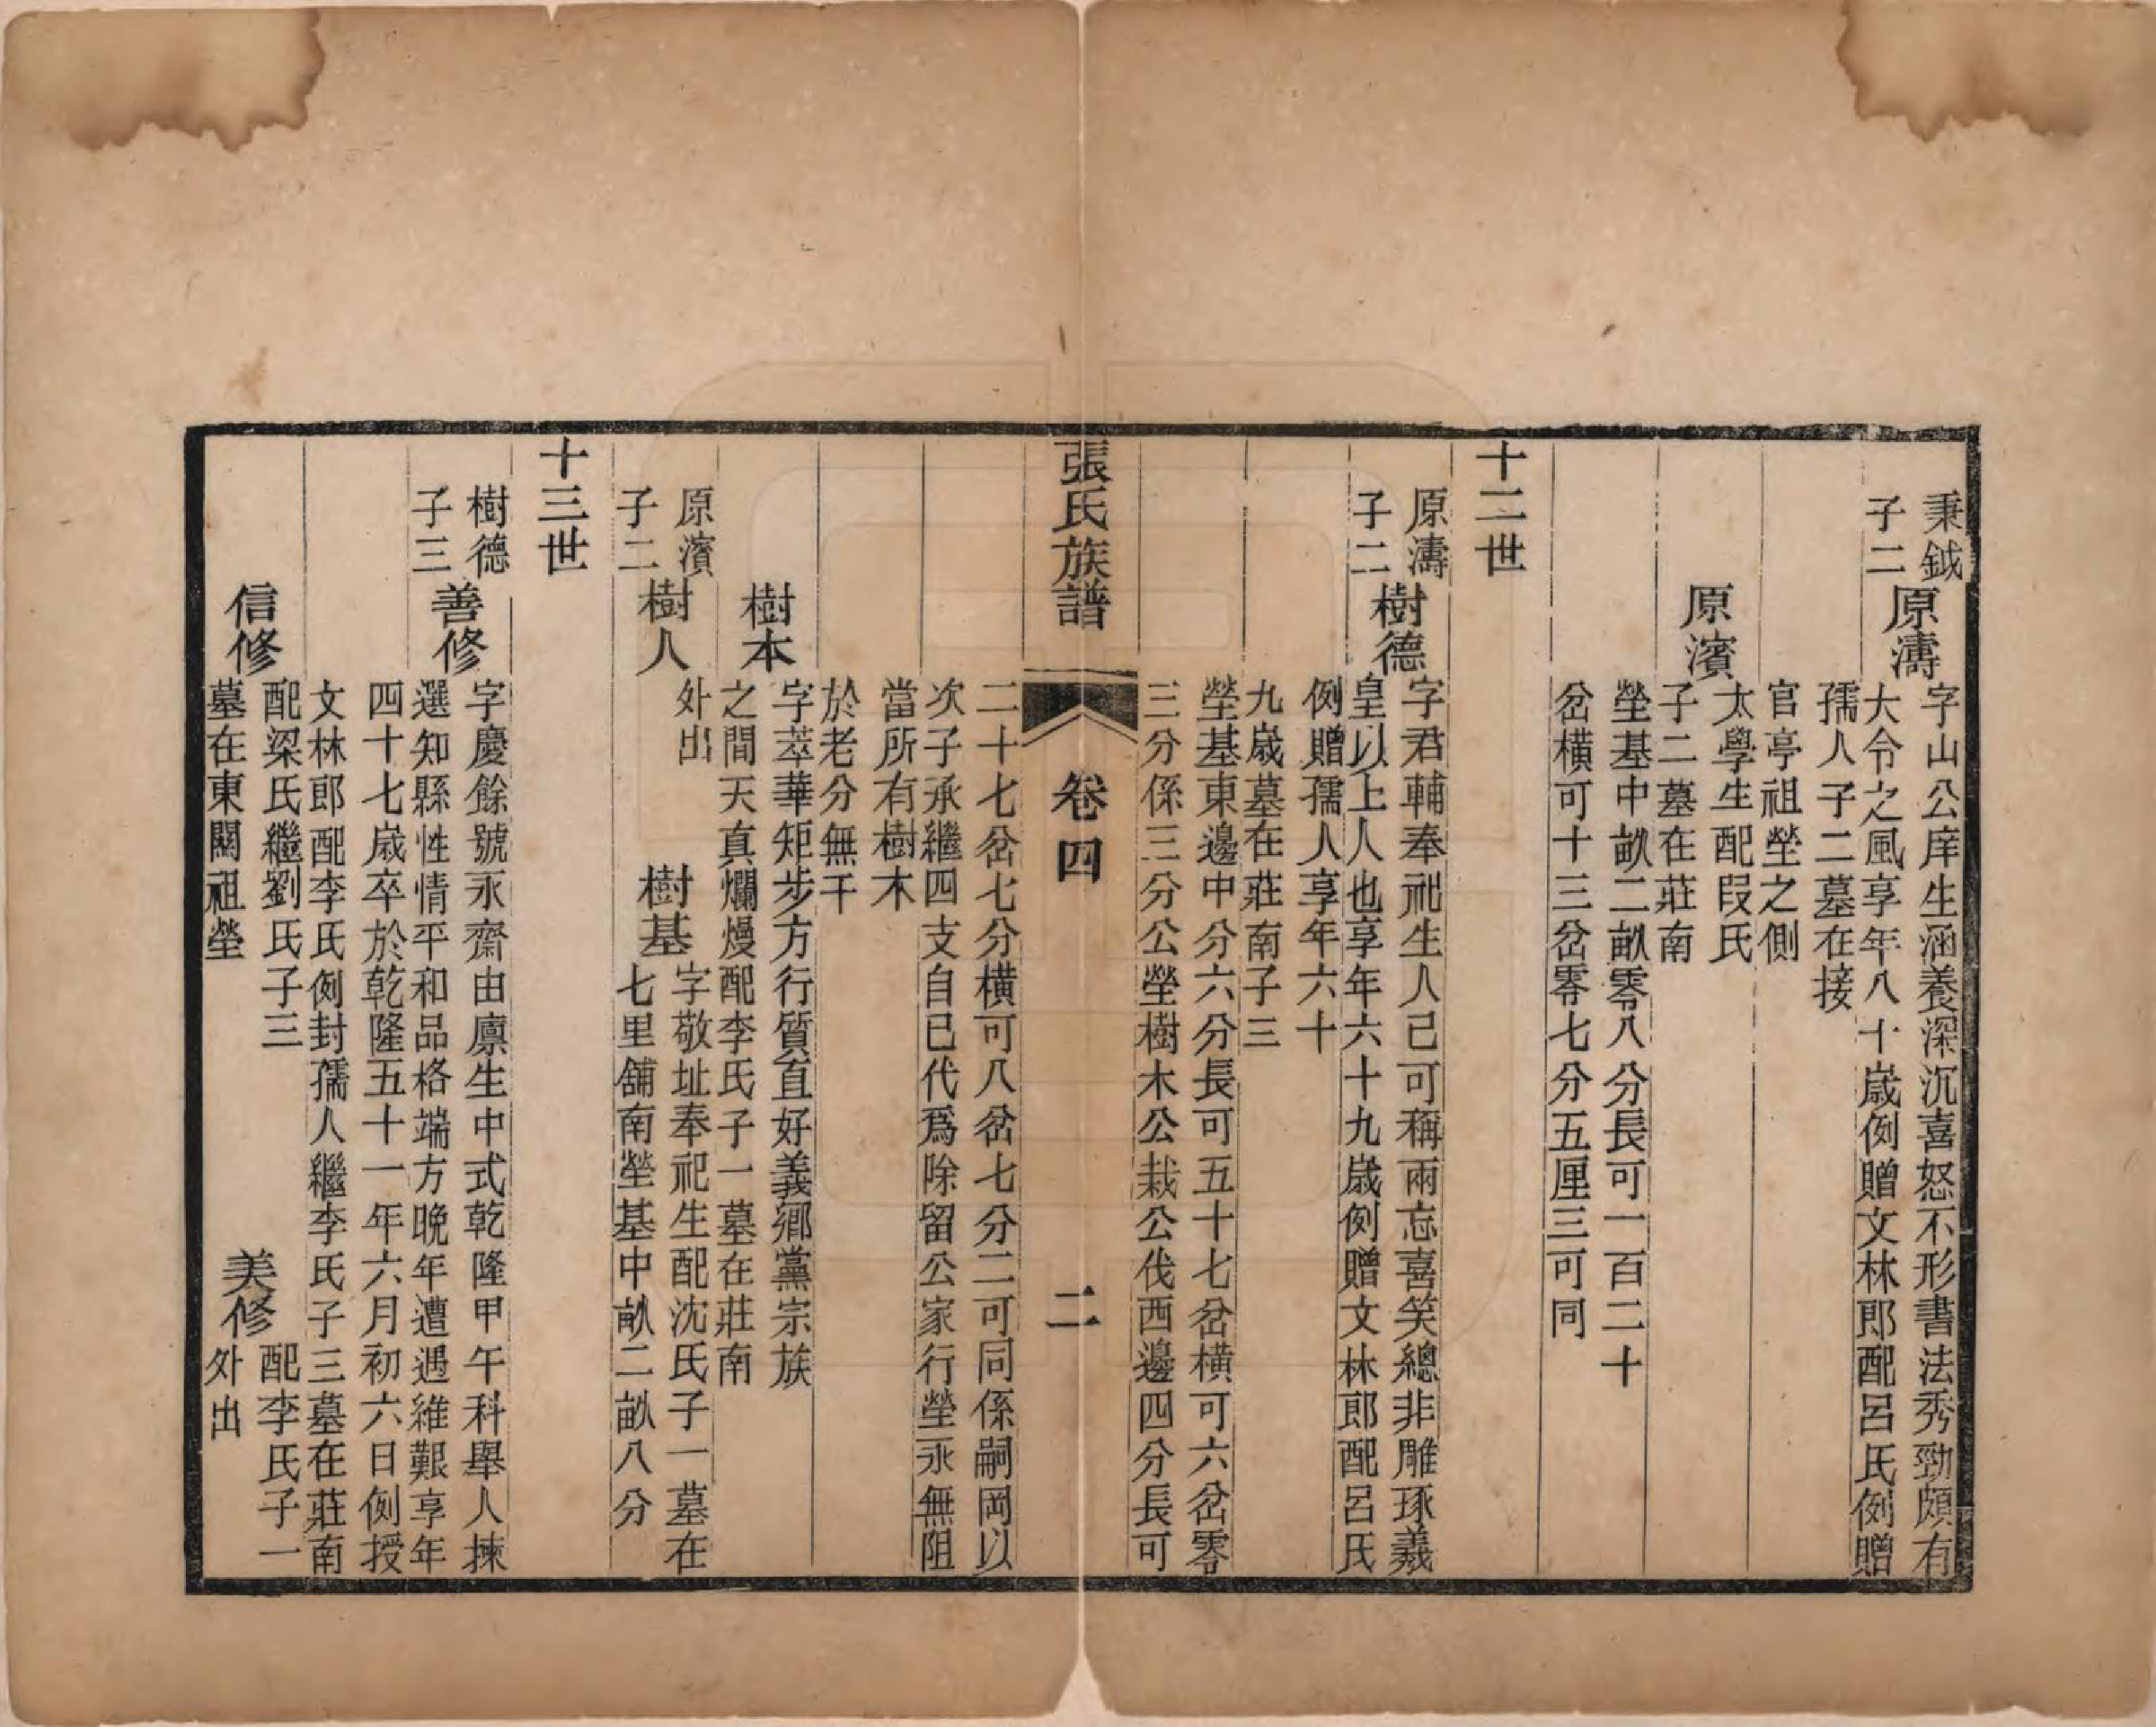 秉鉞
子二
原濤
字山公庠生涵養深沉喜怒不形書法秀勁頗有
大令之風享年八十歲例贈文林郎配呂氏例贈
孺人子二墓在接
官亭祖塋之側
原濱
太學生配段氏
子二墓在莊南
塋基中畝二畝零八分長可一百二十
岔橫可十三岔零七分五厘三可同
十二世
原濤
子二
樹德
字君輔奉祀生人己可稱兩忘喜笑總非雕琢羲
皇以上人也享年六十九歲例贈文林郎配呂氏
例贈孺人享年六十
九歲墓在莊南子三
塋基東邊中分六分長可五十七岔橫可六岔零
三分係三分公塋樹木公栽公伐西邊四分長可
張氏族譜
卷四
二
二十七岔七分橫可八岔七分二可同係嗣岡以
次子承繼四支自己代爲除留公家行塋永無阻
當所有樹木
於老分無干
樹本
字萃華矩步方行質直好義鄉黨宗族
之間天真爛熳配李氏子一墓在莊南
原濱
子二
樹人
外出
樹基
字敬址奉祀生配沈氏子一墓在
七里舖南塋基中畝二畝八分
十三世
樹德
子三
善修
字慶餘號永齋由廪生中式乾隆甲午科舉人揀
選知縣性情平和品格端方晚年遭遇維艱享年
四十七歲卒於乾隆五十一年六月初六日例授
文林郎配李氏例封孺人繼李氏子三墓在莊南
信修
配梁氏繼劉氏子三
墓在東關祖塋
美修
配李氏子一
外出